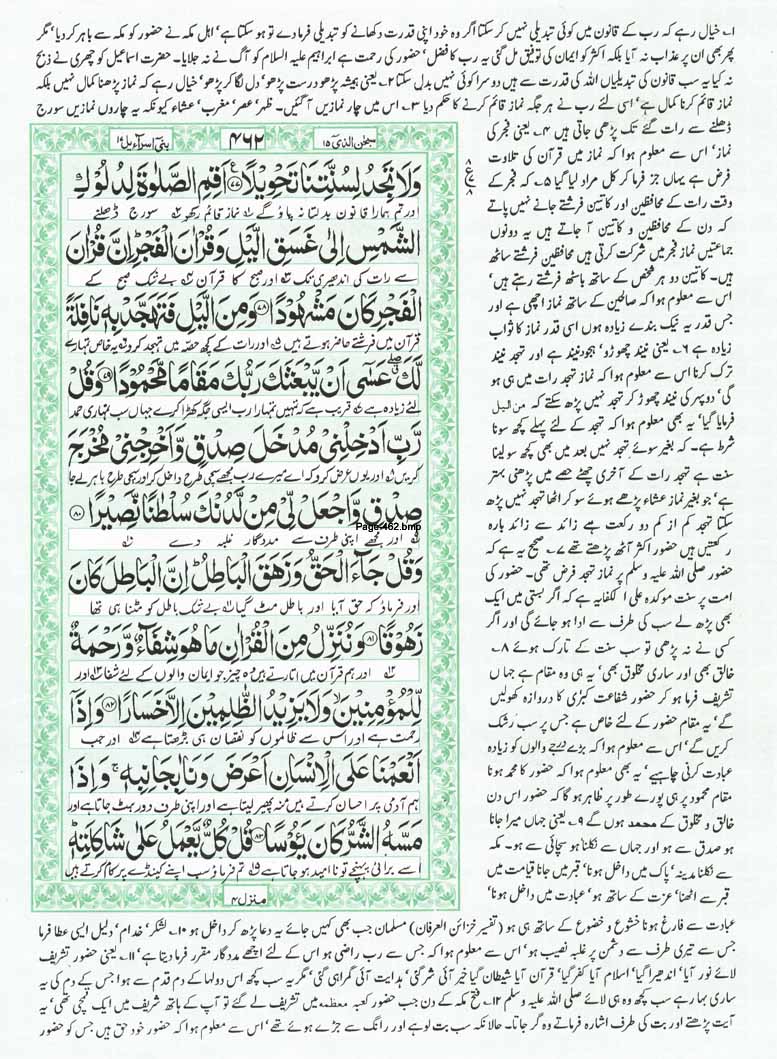 ۱۔ خیال رہے کہ رب کے قانون میں کوئی تبدیلی نہیں کر سکتا اگر وہ خود اپنی قدرت دکھانے کو تبدیلی فرما دے تو ہو سکتا ہے' اہل مکہ نے حضور کو مکہ سے باہر کر دیا' مگر
پھر بھی ان پر عذاب نہ آیا بلکہ اکثر کو ایمان کی توفیق مل گئی یہ رب کا فضل' حضور کی رحمت ہے ابراہیم علیہ السلام کو آگ نے نہ جلایا۔ حضرت اسماعیل کو چھری نے ذبح
نہ کیا یہ سب قانون کی تبدیلیاں اللہ کی قدرت سے ہیں دوسرا کوئی نہیں بدل سکتا ۲۔ یعنی ہمیشہ پڑھو درست پڑھو' دل لگا کر پڑھو' خیال رہے کہ نماز پڑھنا کمال نہیں بلکہ
نماز قائم کرنا کمال ہے' اسی لئے رب نے ہر جگہ نماز قائم کرنے کا حکم دیا ۳۔ اس میں چار نمازیں آ گئیں۔ ظہر' عصر' مغرب' عشاء کیونکہ یہ چاروں نمازیں سورج
ڈھلنے سے رات گئے تک پڑھی جاتی ہیں ۴۔ یعنی فجر کی
نماز' اس سے معلوم ہوا کہ نماز میں قرآن کی تلاوت
فرض ہے یہاں جز فرما کر کل مراد لیا گیا ۵۔ کہ فجر کے
وقت رات کے محافظین اور کاتبین فرشتے جانے نہیں پاتے
کہ دن کے محافظین و کاتبین آ جاتے ہیں یہ دونوں
جماعتیں نماز فجر میں شرکت کرتی ہیں محافظین فرشتے ساٹھ
ہیں۔ کاتبین دو ہر شخص کے ساتھ باسٹھ فرشتے رہتے ہیں'
اس سے معلوم ہوا کہ صالحین کے ساتھ نماز اچھی ہے اور
جس قدر یہ نیک بندے زیادہ ہوں اسی قدر نماز کا ثواب
زیادہ ہے ۶۔ یعنی نیند چھوڑو' ہجود نیند ہے اور تہجد نیند
ترک کرنا اس سے معلوم ہوا کہ نماز تہجد رات میں ہی ہو
گی' دوپہر کی نیند چھوڑ کر تہجد نہیں پڑھ سکتے کہ من الیل
فرمایا گیا' یہ بھی معلوم ہوا کہ تہجد کے لئے پہلے کچھ سونا
شرط ہے۔ کہ بغیر سوئے تہجد نہیں بعد میں بھی کچھ سو لینا
سنت ہے تہجد رات کے آخری چھٹے حصے میں پڑھنی بہتر
ہے' جو بغیر نماز عشاء پڑھے ہوئے سو کر اٹھا تہجد نہیں پڑھ
سکتا تہجد کم از کم دو رکعت ہے زائد سے زائد بارہ
رکعتیں ہیں حضور اکثر آٹھ پڑھتے تھے ۷۔ صحیح یہ ہے کہ
حضور صلی اللہ علیہ وسلم پر نماز تہجد فرض تھی۔ حضور کی
امت پر سنت موکدہ علی الکفایہ ہے کہ اگر بستی میں ایک
بھی پڑھ لے سب کی طرف سے ادا ہو جائے گی اور اگر
کسی نے نہ پڑھی تو سب سنت کے تارک ہوئے ۸۔
خالق بھی اور ساری مخلوق بھی' یہ ہی وہ مقام ہے جہاں
تشریف فرما ہو کر حضور شفاعت کبریٰ کا دروازہ کھولیں
گے' یہ مقام حضور کے لئے خاص ہے جس پر سب رشک
کریں گے' اس سے معلوم ہوا کہ بڑے درجے والوں کو زیادہ
عبادت کرنی چاہیے' یہ بھی معلوم ہوا کہ حضور کا محمد ہونا
مقام محمود پر ہی پورے طور پر ظاہر ہو گا کہ حضور اس دن
خالق و مخلوق کے محمد ہوں گے ۹۔ یعنی جہاں میرا جانا
ہو صدق سے ہو اور جہاں سے نکلنا ہو سچائی سے ہو۔ مکہ
سے نکلنا مدینہ' پاک میں داخل ہونا' قبر میں جانا قیامت میں
قبر سے اٹھنا' عزت کے ساتھ ہو' عبادت میں داخل ہونا'
سبحٰن الذی ۱۵
۴۶۲
بنی اسرآءیل ۱۷
وَلَا تَجِدُ لِسُنَّتِنَا تَحْوِيلًا ۷۷ اَقِمِ الصَّلٰوةَ لِدُلُوْكِ
اور تم ہمارا قانون بدلتا نہ پاؤ گے نماز قائم رکھو سورج ڈھلنے
الشَّمْسِ اِلٰى غَسَقِ الَّيْلِ وَقُرْاٰنَ الْفَجْرِ اِنَّ قُرْاٰنَ
سے رات کی اندھیری تک اور صبح کا قرآن بے شک صبح کے
الْفَجْرِ كَانَ مَشْهُوْدًا ۷۸ وَمِنَ الَّيْلِ فَتَهَجَّدْ بِهٖ نَافِلَةً
قرآن میں فرشتے حاضر ہوتے ہیں اور رات کے کچھ حصہ میں تہجد کرو یہ خاص تمہارے
لَّكَ عَسٰٓى اَنْ يَّبْعَثَكَ رَبُّكَ مَقَامًا مَّحْمُوْدًا ۷۹ وَقُلْ
لئے زیادہ ہے قریب ہے کہ تمہیں تمہارا رب ایسی جگہ کھڑا کرے جہاں سب تمہاری حمد
رَّبِّ اَدْخِلْنِيْ مُدْخَلَ صِدْقٍ وَّاَخْرِجْنِيْ مُخْرَجَ
کریں اور یوں عرض کرو کہ اے میرے رب مجھے سچی طرح داخل کر اور سچی طرح باہر لے جا
صِدْقٍ وَّاجْعَلْ لِّيْ مِنْ لَّدُنْكَ سُلْطٰنًا نَّصِيْرًا ۸۰
Page-462.bmp
اور مجھے اپنی طرف سے مددگار غلبہ دے
وَقُلْ جَآءَ الْحَقُّ وَزَهَقَ الْبَاطِلُ اِنَّ الْبَاطِلَ كَانَ
اور فرماؤ کہ حق آیا اور باطل مٹ گیا بے شک باطل کو مٹنا ہی تھا
زَهُوْقًا ۸۱ وَنُنَزِّلُ مِنَ الْقُرْاٰنِ مَا هُوَ شِفَآءٌ وَّرَحْمَةٌ
اور ہم قرآن میں اتارتے ہیں وہ چیز جو ایمان والوں کے لئے شفا اور
لِّلْمُؤْمِنِيْنَ وَلَا يَزِيْدُ الظّٰلِمِيْنَ اِلَّا خَسَارًا ۸۲ وَاِذَآ
رحمت ہے اور اس سے ظالموں کو نقصان ہی بڑھتا ہے اور جب
اَنْعَمْنَا عَلَى الْاِنْسَانِ اَعْرَضَ وَنَاٰ بِجَانِبِهٖ وَاِذَا
ہم آدمی پر احسان کرتے ہیں منہ پھیر لیتا ہے اور اپنی طرف دور ہٹ جاتا ہے اور جب
مَسَّهُ الشَّرُّ كَانَ يَـُٔوْسًا ۸۳ قُلْ كُلٌّ يَّعْمَلُ عَلٰى شَاكِلَتِهٖ
اسے برائی پہنچے تو ناامید ہو جاتا ہے تم فرماؤ سب اپنے کینڈے پر کام کرتے ہیں
منزل ۴
عبادت سے فارغ ہونا خشوع و خضوع کے ساتھ ہی ہو (تفسیر خزائن العرفان) مسلمان جب بھی کہیں جائے یہ دعا پڑھ کر داخل ہو ۱۰۔ لشکر' خدام' دلیل ایسی عطا فرما
جس سے تیری طرف سے دشمن پر غلبہ نصیب ہو' اس سے معلوم ہوا کہ جس سے رب راضی ہو اس کے لئے اچھے مددگار مقرر فرما دیتا ہے' ۱۱۔ یعنی حضور تشریف
لائے نور آیا' اندھیرا گیا' اسلام آیا کفر گیا' قرآن آیا شیطان گیا خیر آئی شر گئی' ہدایت آئی گمراہی گئی' مگر یہ سب کچھ اس دولہا کے دم قدم سے ہوا جس کے دم کی یہ
ساری بہار ہے سب کچھ وہ ہی لائے صلی اللہ علیہ وسلم ۱۲۔ فتح مکہ کے دن جب حضور کعبہ معظمہ میں تشریف لے گئے تو آپ کے ہاتھ شریف میں ایک قمچی تھی' یہ
آیت پڑھتے اور بت کی طرف اشارہ فرماتے وہ گر جاتا۔ حالانکہ سب بت لوہے اور رانگ سے جڑے ہوئے تھے' اس سے معلوم ہوا کہ حضور خود حق ہیں جس کو حضور